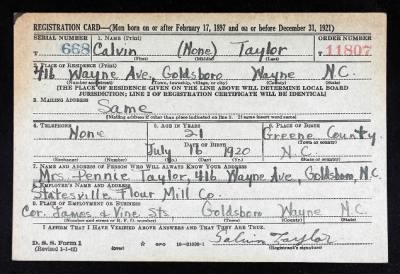 REGISTRATION CARD—(Men born on or after February 17, 1897 and on or before December 31, 1921)
SERIAL NUMBER 1. NAME (Print) ORDER NUMBER
T 668 Calvin (None) Taylor T 11807
(First) (Middle) (Last)
2. PLACE OF RESIDENCE (Print)
416 Wayne Ave, Goldsboro Wayne N.C.
(Number and street) (Town, township, village, or city) (County) (State)
[THE PLACE OF RESIDENCE GIVEN ON THE LINE ABOVE WILL DETERMINE LOCAL BOARD
JURISDICTION; LINE 2 OF REGISTRATION CERTIFICATE WILL BE IDENTICAL]
3. MAILING ADDRESS
Same
[Mailing address if other than place indicated on line 2. If same insert word same]
4. TELEPHONE 5. AGE IN YEARS 6. PLACE OF BIRTH
None 21 Greene County
DATE OF BIRTH (Town or county)
July 16 1920 N.C.
(Exchange) (Number) (Mo.) (Day) (Yr.) (State or country)
7. NAME AND ADDRESS OF PERSON WHO WILL ALWAYS KNOW YOUR ADDRESS
Mrs. Pennie Taylor, 416 Wayne Ave, Goldsboro, N.C.
8. EMPLOYER'S NAME AND ADDRESS
Statesville Flour Mill Co.
9. PLACE OF EMPLOYMENT OR BUSINESS
Cor. James & Vine Sts. Goldsboro Wayne N.C.
(Number and street or R. F. D. number) (Town) (County) (State)
I AFFIRM THAT I HAVE VERIFIED ABOVE ANSWERS AND THAT THEY ARE TRUE.
D. S. S. Form 1
(Revised 1-1-42) (over) GPO 16—21630-1 Calvin Taylor